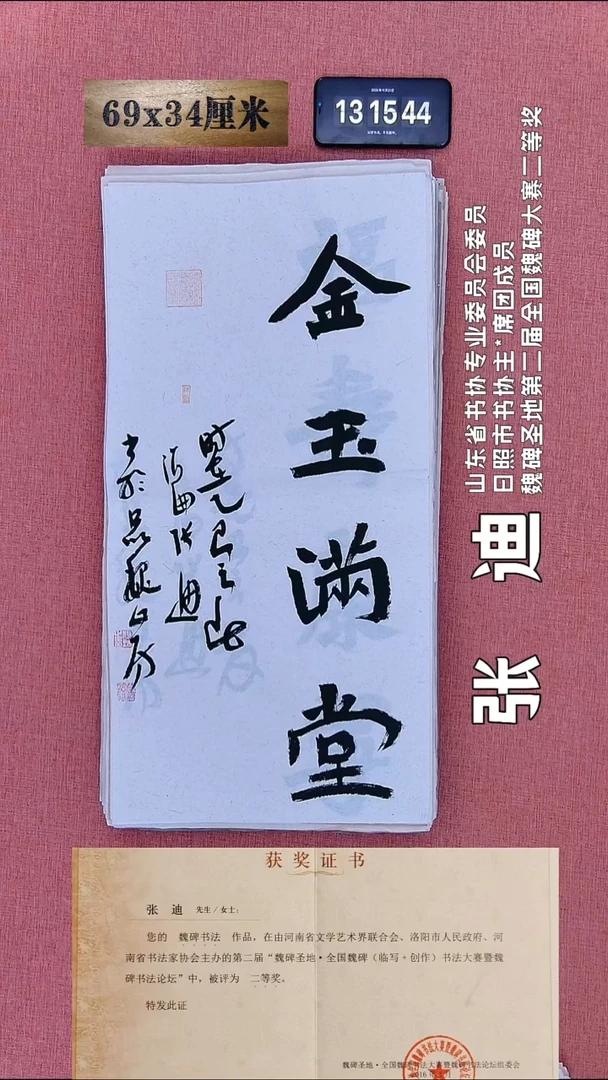 69x34厘米
13 15 44
山东省书协专业委员会委员
日照市书协主*席团成员
魏碑圣地第二届全国魏碑大赛二等奖
张 迪
金玉满堂
获奖证书
张 迪 先生/女士：
您的 魏碑书法 作品，在由河南省文学艺术界联合会、洛阳市人民政府、河
南省书法家协会主办的第二届“魏碑圣地·全国魏碑（临写+创作）书法大赛暨魏
碑书法论坛”中，被评为 二等奖。
特发此证
魏碑圣地·全国魏碑书法大赛暨魏碑书法论坛组委会